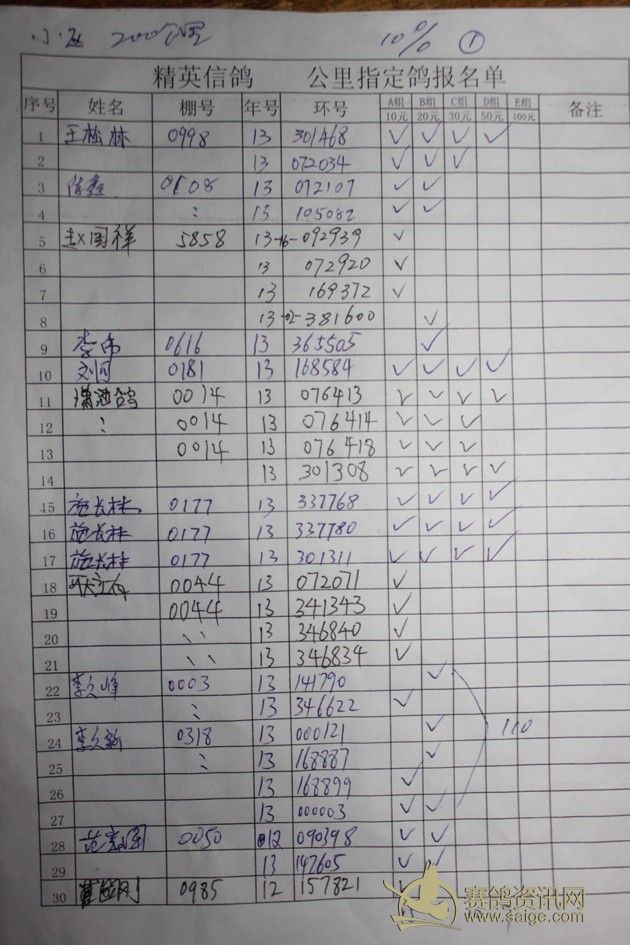 200公里 10% ①
精英信鸽 公里指定鸽报名单
序号 姓名 棚号 年号 环号 A组 B组 C组 D组 E组 备注
10元 20元 30元 50元 100元
1 王松林 0998 13 301468 ✓ ✓ ✓ ✓
2 13 072034 ✓ ✓ ✓
3 陈鑫 0108 13 072107 ✓ ✓
4 : 13 105082 ✓ ✓
5 赵国祥 5858 13-16-092939 ✓
6 13 072920 ✓
7 13 169372 ✓
8 13-02-381600 ✓
9 李伟 0616 13 365505 ✓
10 刘问 0181 13 168584 ✓ ✓ ✓ ✓
11 潇洒鸽 0014 13 076413 ✓ ✓ ✓ ✓
12 : 0014 13 076414 ✓ ✓ ✓
13 0014 13 076418 ✓ ✓ ✓
14 13 301308 ✓ ✓ ✓ ✓
15 施长林 0177 13 337768 ✓ ✓ ✓ ✓
16 施长林 0177 13 337780 ✓ ✓ ✓ ✓
17 施长林 0177 13 301311 ✓ ✓ ✓ ✓
18 0044 13 072071 ✓
19 0044 13 341343 ✓
20 13 346840 ✓
21 13 346834 ✓
22 李久峰 0003 13 141790 ✓
23 : 13 346622 ✓
24 李久新 0318 13 000121 ✓ 110
25 : 13 168887 ✓
26 13 168899 ✓
27 13 000003 ✓ ✓
28 0050 12 090398 ✓ ✓
29 13 147605 ✓ ✓
30 0985 12 157821 ✓
赛鸽资讯网
www.saige.com